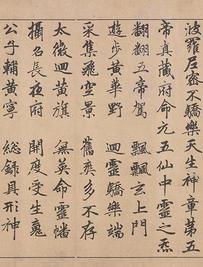 波羅尼密不驕樂天生神章第五
帝真藏府命元五仙中靈之炁
翻翻五帝駕　飄飄玄上門
遊步黃華野　迴靈驕樂端
采集飛空景　舊奕多不存
太微迴黃旗　無英命靈幡
攝召長夜府　開度受生魂
公子輔黃寧　總錄具形神